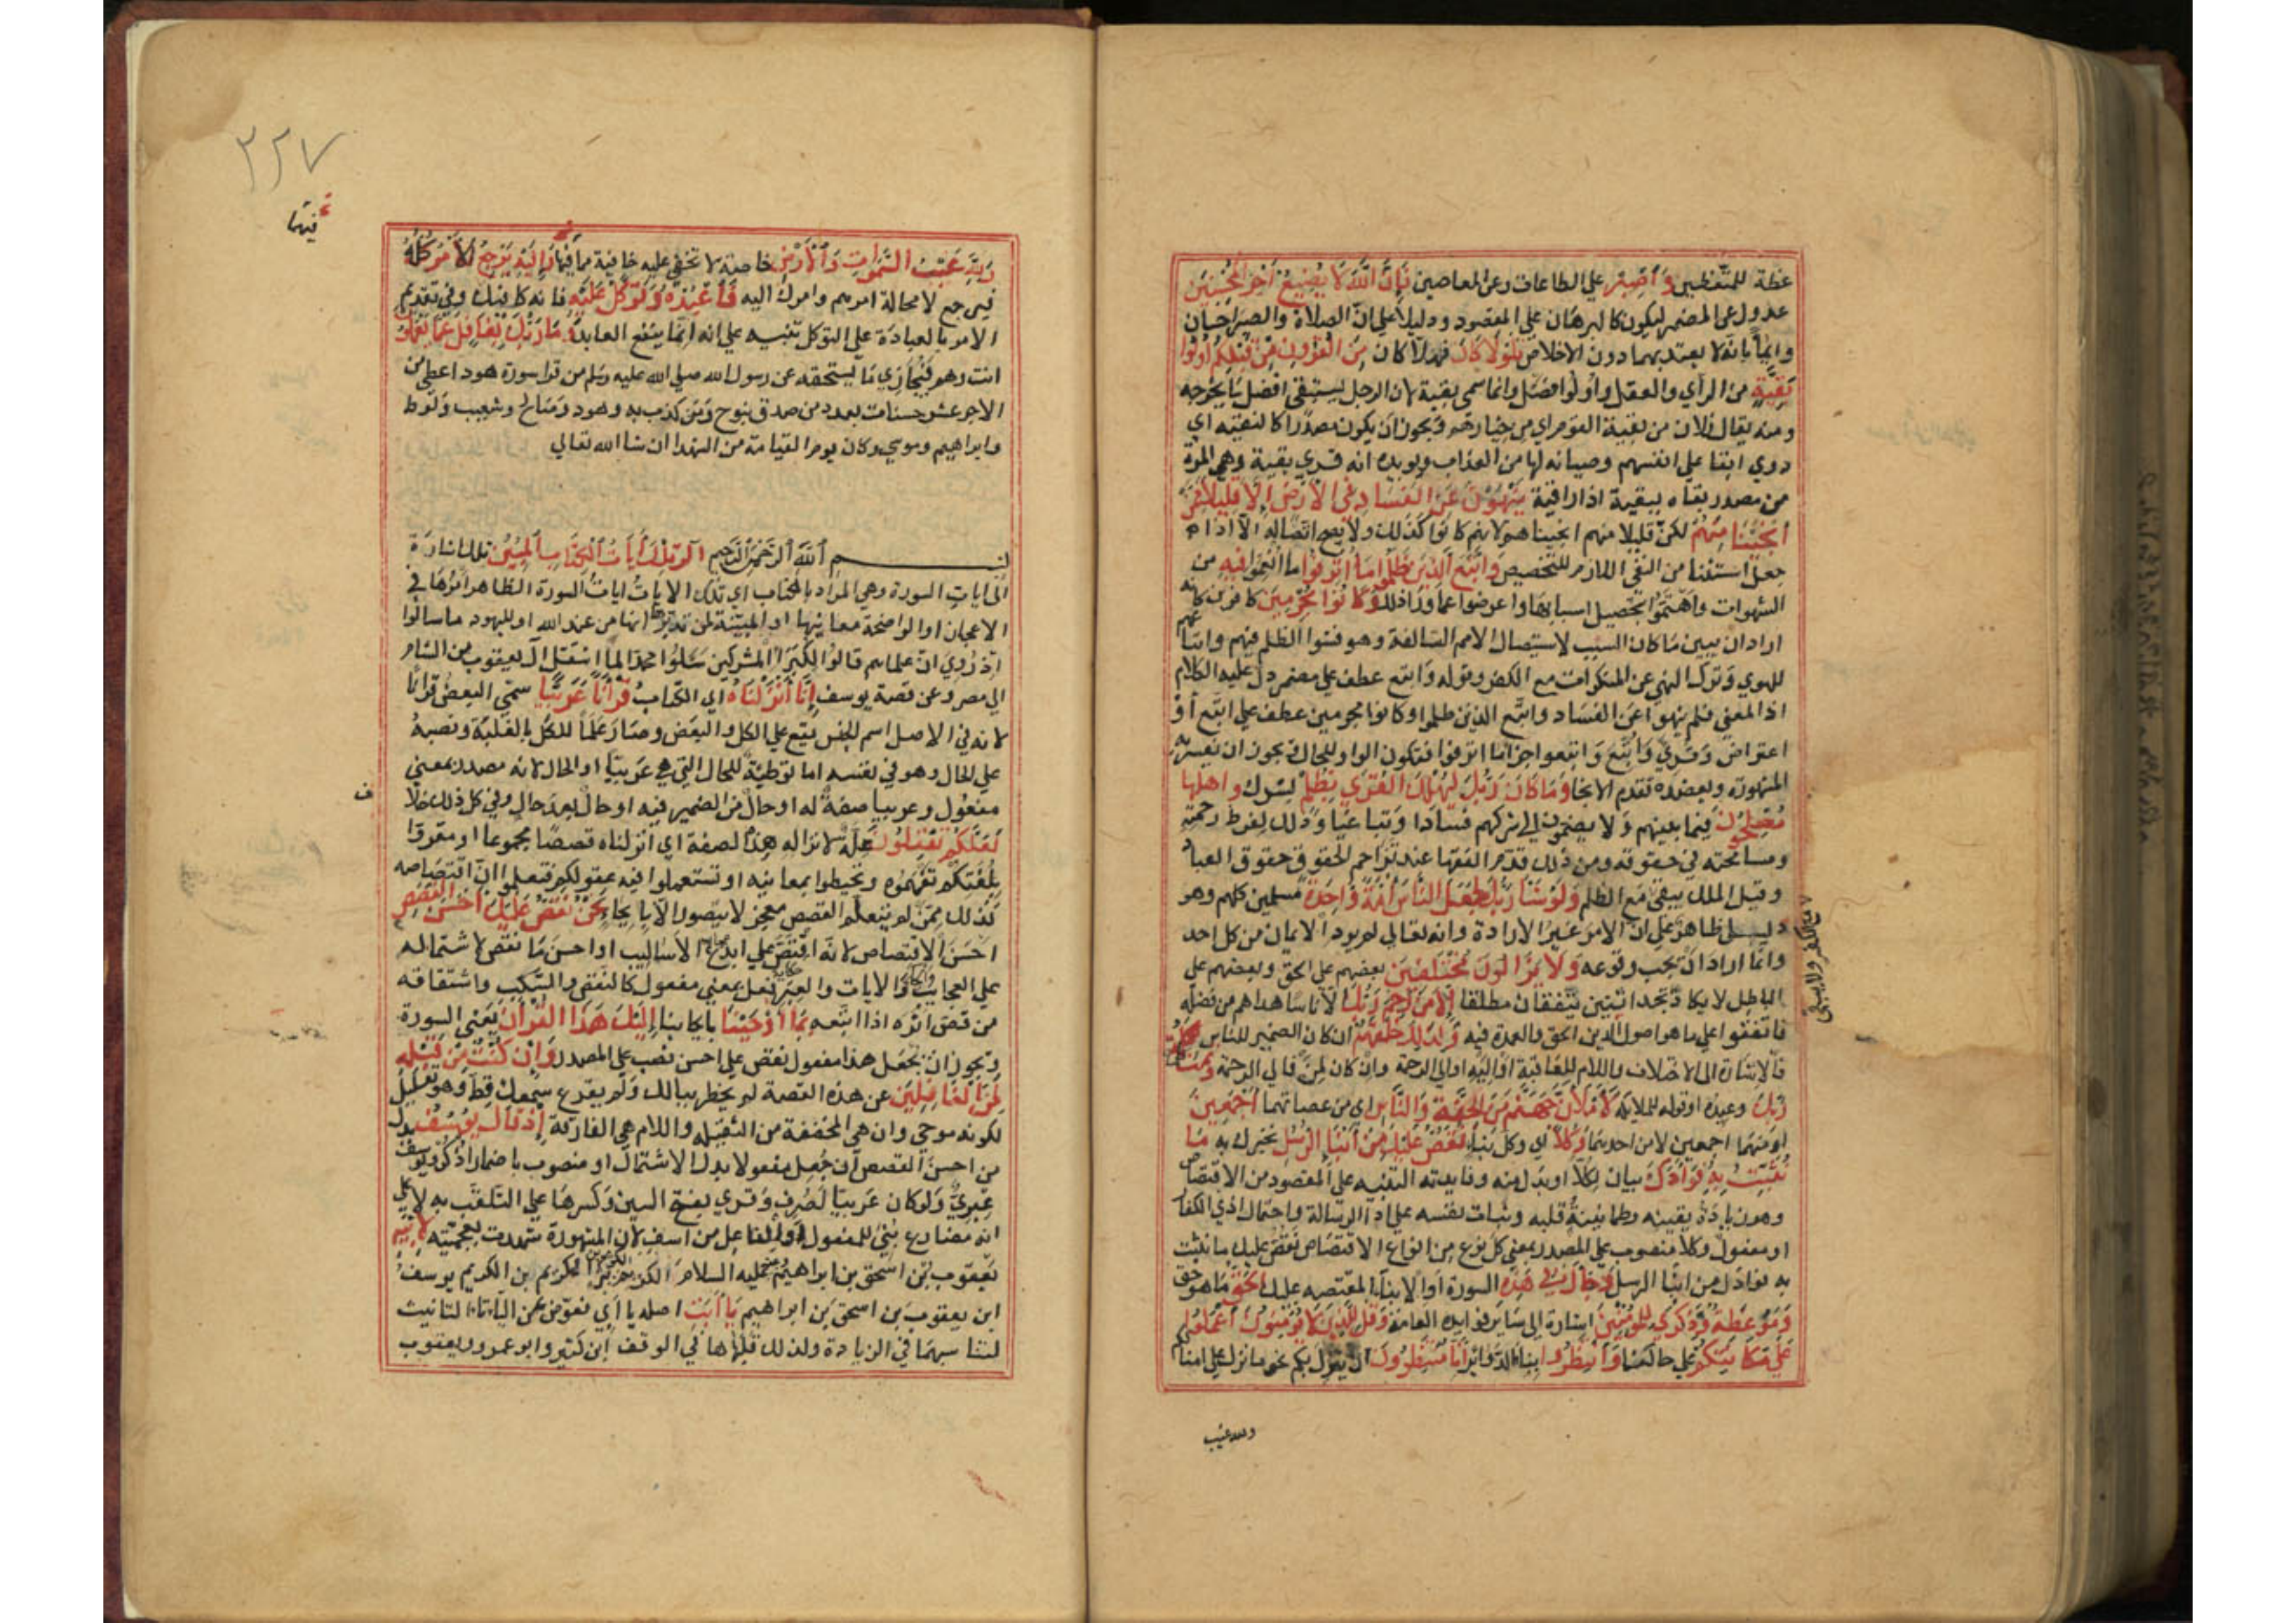 عظة للمتعظين وَاصْبِرْ على الطاعات وعن المعاصي فَإِنَّ اللَّهَ لَا يُضِيعُ أَجْرَ الْمُحْسِنِينَ
عدول عن المضمر ليكون كالبرهان على المقصود ودليلا على انّ الصلاة والصبر احسان
وايماً بانه لا يعتد بهما دون الاخلاص فَلَوْلَا كَانَ فهلا كان مِنَ الْقُرُونِ مِنْ قَبْلِكُمْ أُولُوا
بَقِيَّةٍ من الرأي والعقل واولوا فضل وانما سمى بقية لان الرجل يستبقى افضل ما يخرجه
ومنه يقال فلان من بقية القوم اي من خيارهم ويجوز ان يكون مصدرا كالتقيه اي
ذوي ابقا على انفسهم وصيانه لها من العذاب ويويده انه قري بقية وهى المرة
من مصدر بقاه يبقيه اذا راقبه يَنْهَوْنَ عَنِ الْفَسَادِ فِي الْأَرْضِ إِلَّا قَلِيلًا مِمَّنْ
أَنْجَيْنَا مِنْهُمْ لكن قليلا منهم انجيناهم لانهم كانوا كذلك ولا يصح اتصاله الا اذا
جعل استثنا من النفى اللازم للتحضيض وَاتَّبَعَ الَّذِينَ ظَلَمُوا مَا أُتْرِفُوا ما انعموا فِيهِ من
الشهوات واهتموا بتحصيل اسبابها واعرضوا عما ورا ذلك وَكَانُوا مُجْرِمِينَ كافرين كانه
اراد ان يبين ما كان السبب لاستيصال الامم السالفة وهو فشوا الظلم فيهم واتباعهم
للهوي وترك النهي عن المنكرات مع الكفر وقوله واتبع عطف على مضمر دل عليه الكلام
اذ المعنى فلم ينهوا عن الفساد واتبع الذين ظلموا وكانوا مجرمين عطف على اتبع أو
اعتراض وقري وأُتبع اي واتبعوا جزا ما اترفوا فتكون الواو للحال ويجوز ان تفسر به
المشهورة ويعضده تقدم الانجا وَمَا كَانَ رَبُّكَ لِيُهْلِكَ الْقُرَى بِظُلْمٍ بشرك وَأَهْلُهَا
مُصْلِحُونَ فيما بينهم ولا يضمون الى شركهم فسادا وتباغيا وذلك لفرط رحمته
ومسامحته في حقوقه ومن ذلك قدم الفقها عند تزاحم الحقوق حقوق العباد
وقيل الملك يبقى مع الظلم وَلَوْ شَاءَ رَبُّكَ لَجَعَلَ النَّاسَ أُمَّةً وَاحِدَةً مسلمين كلهم وهو
دليل ظاهر على ان الامر غير الارادة وانه تعالى لم يرد الايمان من كل احد
وانّما اراد ان يجب وقوعه وَلَا يَزَالُونَ مُخْتَلِفِينَ بعضهم على الحق وبعضهم على
الباطل لا يكاد تجد اثنين يتفقان مطلقا إِلَّا مَنْ رَحِمَ رَبُّكَ الا ناسا هداهم من فضله
فاتفقوا على ما هو اصول الدين الحق والعمدة فيه وَلِذَلِكَ خَلَقَهُمْ ان كان الضمير للناس
فالاشارة الى الاختلاف واللام للعاقبة او اليه والى الرحمة وان كان لمن فالى الرحمة وَتَمَّتْ كَلِمَةُ
رَبِّكَ وعيده او قوله للملايكة لَأَمْلَأَنَّ جَهَنَّمَ مِنَ الْجِنَّةِ وَالنَّاسِ اي من عصاتهما أَجْمَعِينَ
او منهما اجمعين لا من احديهما وَكُلًّا اي وكل نبا نَقُصُّ عَلَيْكَ مِنْ أَنْبَاءِ الرُّسُلِ نخبرك به مَا
نُثَبِّتُ بِهِ فُؤَادَكَ بيان لكلا او بدل منه وفايدته التنبيه على المقصود من الاقتصاص
وهو زيادة يقينه وطمانينة قلبه وثبات نفسه على ادا الرسالة واحتمال اذي الكفار
او مفعول وكلا منصوب على المصدر بمعنى كل نوع من انواع الاقتصاص نقص عليك ما نثبت
به فوادك من انبا الرسل وَجَاءَكَ فِي هَذِهِ السورة او الانباء المقتصه عليك الْحَقُّ ما هو حق
وَمَوْعِظَةٌ وَذِكْرَى لِلْمُؤْمِنِينَ اشارة الى ساير فوايده العامة وَقُلْ لِلَّذِينَ لَا يُؤْمِنُونَ اعْمَلُوا
عَلَى مَكَانَتِكُمْ على حالكم وَانْتَظِرُوا بنا الدوائر إِنَّا مُنْتَظِرُونَ ان ينزل بكم نحو ما نزل على امثالكم
ولله غيب
٣٢٧
فيهما
وَلِلَّهِ غَيْبُ السَّمَوَاتِ وَالْأَرْضِ خاصة لا تخفى عليه خافية مما فيها وَإِلَيْهِ يُرْجَعُ الْأَمْرُ كُلُّهُ
فيرجع لا محالة امرهم وامرك اليه فَاعْبُدْهُ وَتَوَكَّلْ عَلَيْهِ فانه كافيك وفي تقديم
الامر بالعبادة على التوكل تنبيه على انه انما ينفع العابد وَمَا رَبُّكَ بِغَافِلٍ عَمَّا تَعْمَلُونَ
انت وهم فيجازي ما يستحقه عن رسول الله صلى الله عليه وسلم من قرا سورة هود اعطي من
الاجر عشر حسنات بعدد من صدق بنوح ومن كذب به وهود وصالح وشعيب ولوط
وابراهيم وموسي وكان يوم القيامة من السعدا ان شا الله تعالي
بسم اللَّهِ الرَّحْمَنِ الرَّحِيمِ الر تِلْكَ آيَاتُ الْكِتَابِ الْمُبِينِ تلك اشارة
الى ايات السورة وهي المراد بالكتاب اي تلك الايات ايات السورة الظاهر امرها في
الاعجاز او الواضحة معانيها او المبينة لمن تدبرها انها من عند الله او لليهود ما سالوا
اذ رُوي ان علماهم قالوا لكبرا المشركين سلوا محمدا لما انتقل ال يعقوب من الشام
الى مصر وعن قصة يوسف إِنَّا أَنْزَلْنَاهُ اي الكتاب قُرْآنًا عَرَبِيًّا سمّى البعض قرانا
لانه في الاصل اسم الجنس يقع على الكل والبعض وصار علما للكل بالغلبة ونصبه
على الحال وهو في نفسه اما توطئة للحال التي هي عربيا او الحال لانه مصدر بمعنى
مفعول وعربيا صفة له او حال من الضمير فيه او حال بعد حال وفي كل ذلك خلاف
لَعَلَّكُمْ تَعْقِلُونَ علة لانزاله بهذه الصفة اي انزلناه قصصا مجموعا او مقروا
بلغتكم كي تفهموه وتحيطوا بمعانيه او تستعملوا فيه عقولكم فتعلموا ان اقتصاصه
كذلك ممن لم يتعلم القصص معجز لا يتصور الا بايحا نَحْنُ نَقُصُّ عَلَيْكَ أَحْسَنَ الْقَصَصِ
احسن الاقتصاص لانه اقتص على ابدع الاساليب او احسن ما نقص لاشتماله
على العجايب والايات والعبر فعل بمعنى مفعول كالنقض والسلب واشتقاقه
من قص اثره اذا اتبعه بِمَا أَوْحَيْنَا بايحاينا إِلَيْكَ هَذَا الْقُرْآنَ يعني السورة
ويجوز ان يجعل هذا مفعول نقص على احسن نصب على المصدر وَإِنْ كُنْتَ مِنْ قَبْلِهِ
لَمِنَ الْغَافِلِينَ عن هذه القصة لم يخطر ببالك ولم يقرع سمعك قط وهو تعليل
لكونه موحى وان هي المخففة من الثقيله واللام هي الفارقة إِذْ قَالَ يُوسُفُ بدل
من احسن القصص ان جعل مفعولا بدل الاشتمال او منصوب باضمار اذكر ويوسف
عبري ولو كان عربيا لصرف وقري بفتح السين وكسرها على التلعب به لا على
انه مضارع بُني للمفعول او الفاعل من اسف لان المشهورة شهدت بعجمته لِأَبِيهِ
يعقوب بن اسحق بن ابراهيم عليه السلام الكريم بن الكريم يوسف
ابن يعقوب بن اسحق بن ابراهيم يَا أَبَتِ اصله يا ابي فعوض عن الياء تاء التانيث
لتناسبهما في الزيادة ولذلك قلبها ها في الوقف ابن كثير وابو عمرو ويعقوب